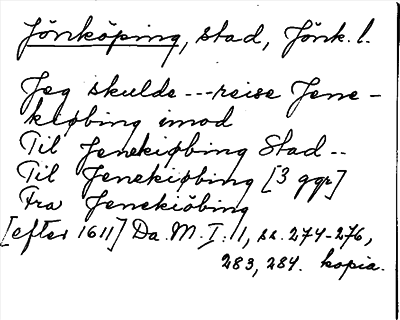 Jönköping, stad, Jönk. l.
Jeg skulde --- reise Jene-
kiøbing imod
Til Jenekiøbing Stad --
Til Jenekiøbing [3 ggr]
Fra Jenekiöbing
[efter 1611] Da. M. I: 1, ss. 274-276,
283, 284. kopia.